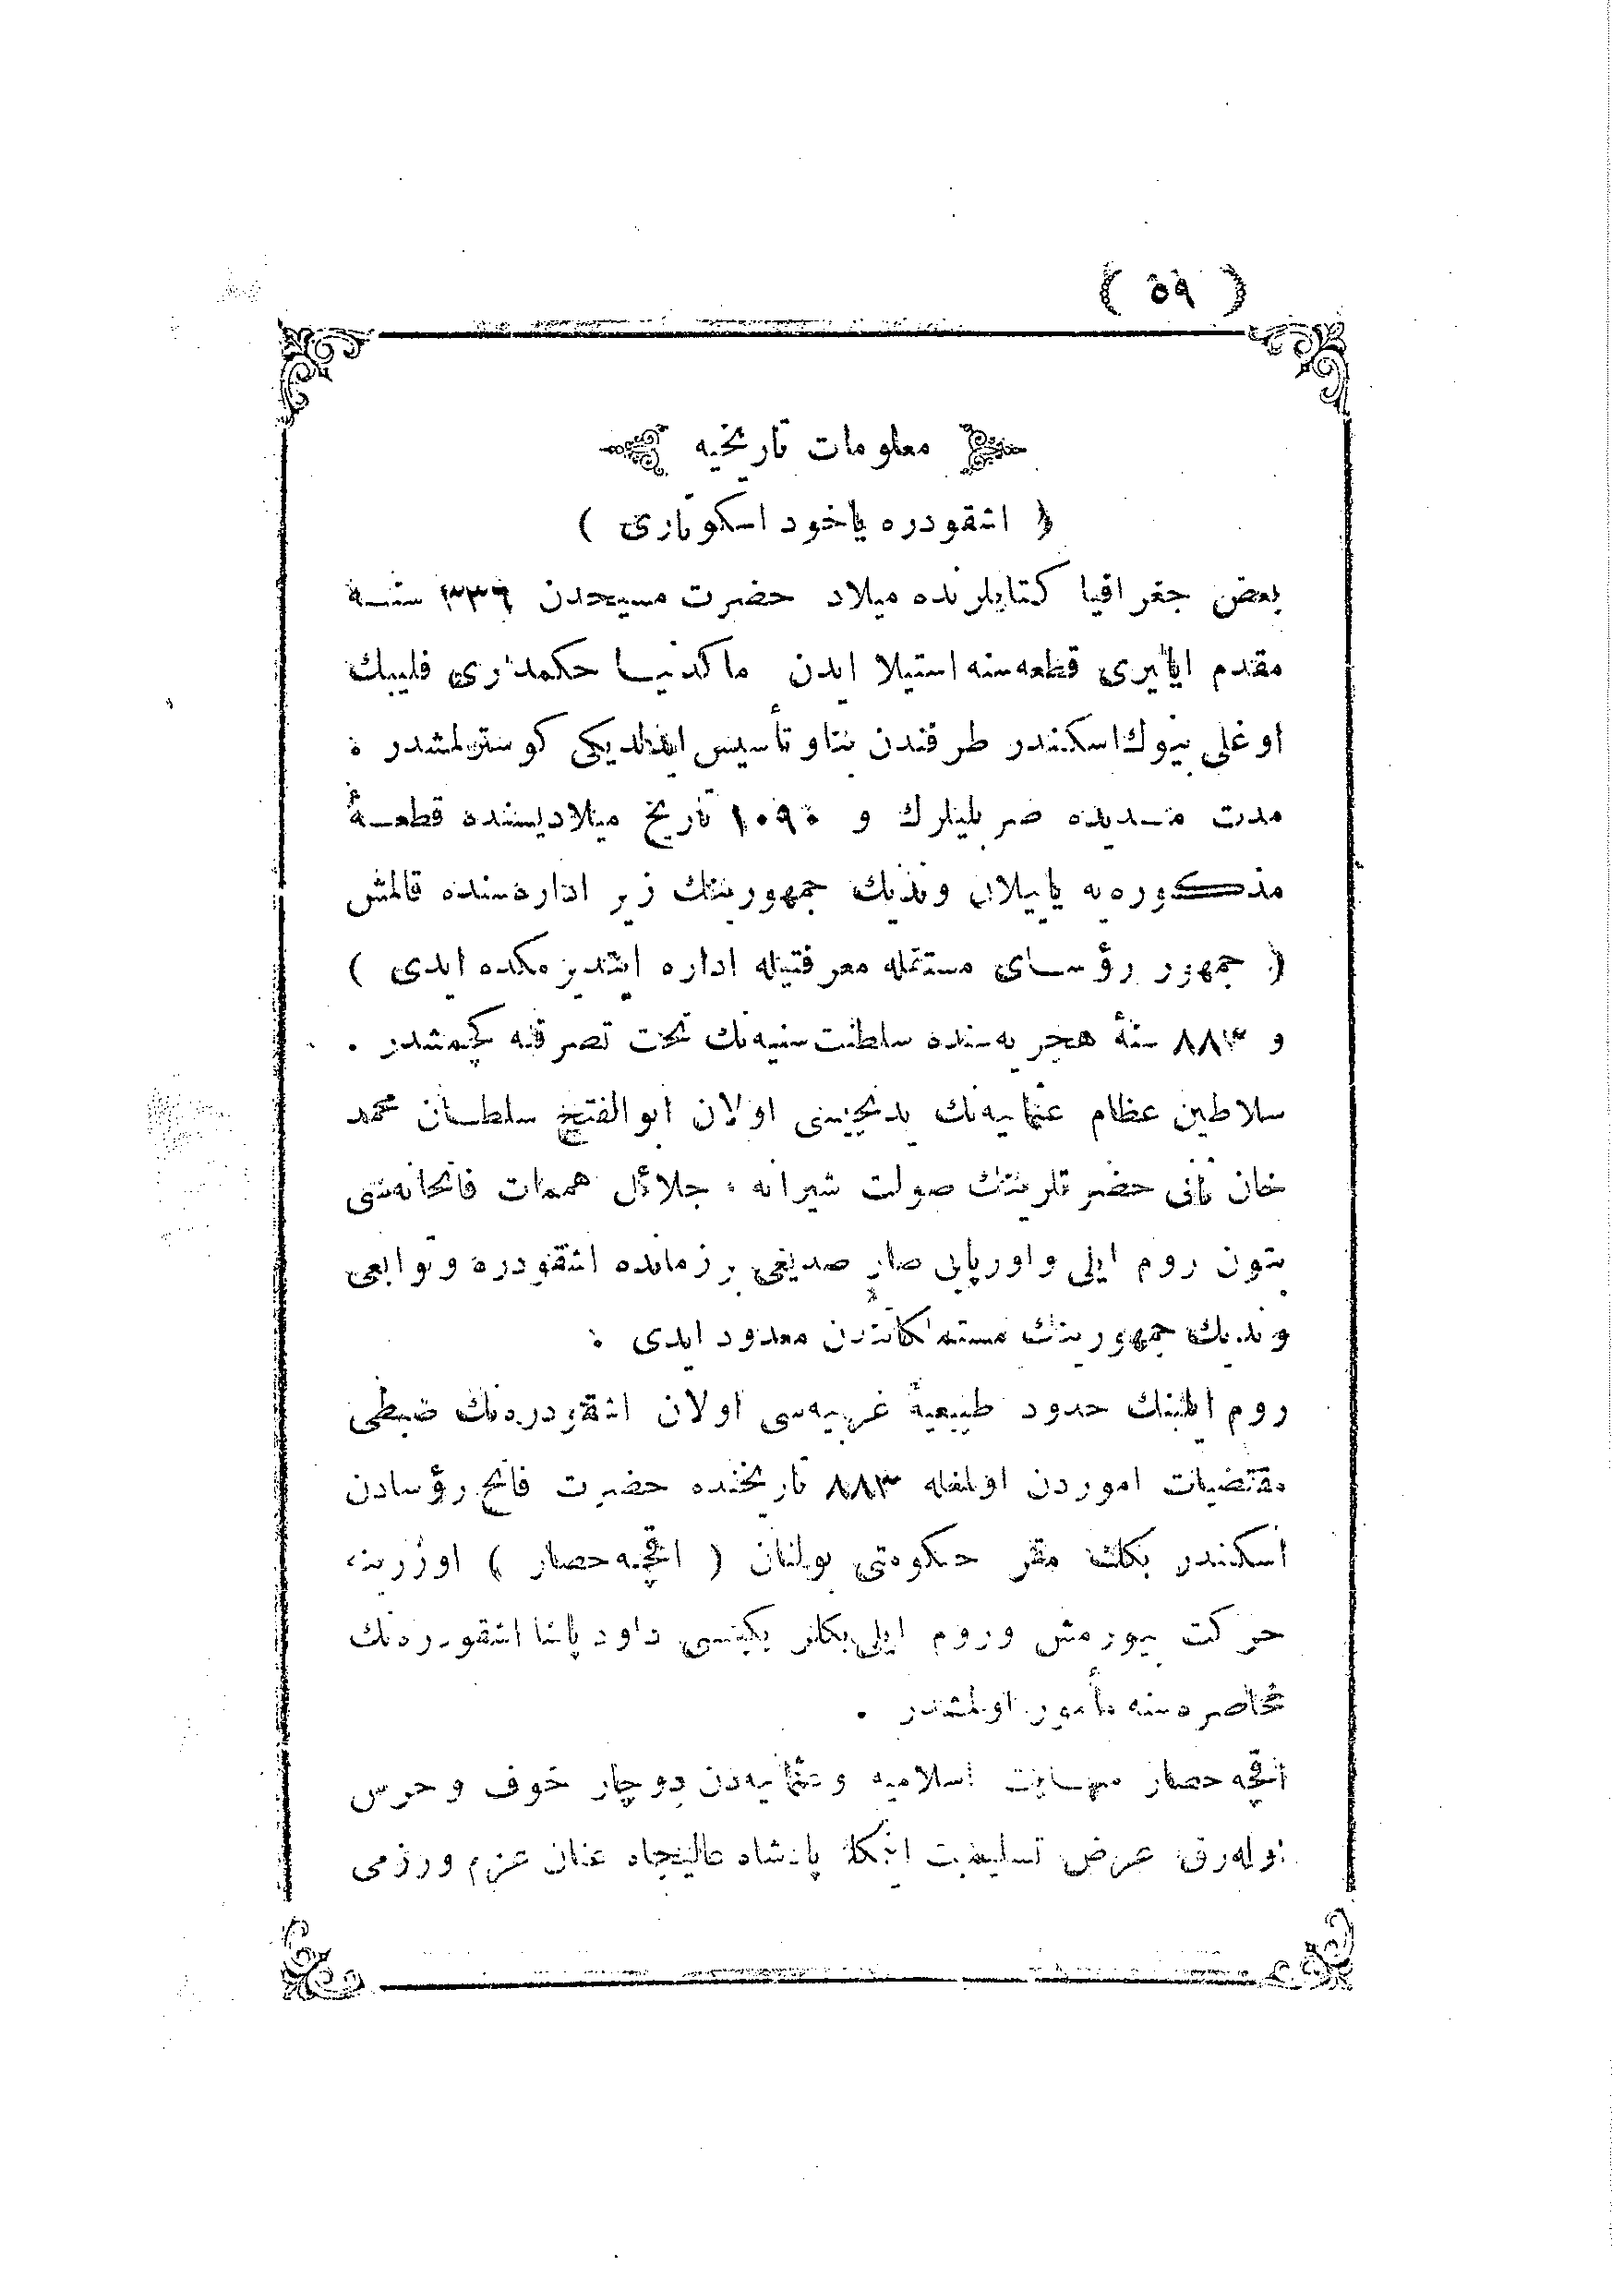 ( ٥٩ )
معلومات تاریخیه
( اشقودره یاخود اسکوتاری )
بعض جغرافیا کتابلرنده میلاد حضرت مسیحدن ٣٣٦ سنه
مقدم ایلیری قطعه‌سنه استیلا ایدن ماکدنیا حکمداری فلیپك
اوغلی بیوك اسکندر طرفندن بنا و تأسیس ایدلدیکی کوسترلمشدر .
مدت مدیده صربلیلرك و ١٠٩٠ تاریخ میلادیسنده قطعهٔ
مذکوره‌یه یاییلان وندیك جمهوریتنك زیر اداره‌سنده قالمش
( جمهور رؤسای مستقله معرفتیله اداره ایتدیرمکده ایدی )
و ٨٨٣ سنهٔ هجریه‌سنده سلطنت سنیه‌نك تحت تصرفنه کچمشدر .
سلاطین عظام عثمانیه‌نك یدنجیسی اولان ابوالفتح سلطان محمد
خان ثانی حضرتلرینك صولت شیرانه ، جلائل همات فاتحانه‌سی
بتون روم ایلی و اوروپایی صارصدیغی بر زمانده اشقودره و توابعی
وندیك جمهورینك مستملکاتندن معدود ایدی .
روم ایلینك حدود طبیعیهٔ غربیه‌سی اولان اشقودره‌نك ضبطی
مقتضیات اموردن اولمغله ٨٨٣ تاریخنده حضرت فاتح رؤسادن
اسکندر بکك مقر حکومتی بولنان ( اقچه‌حصار ) اوزرینه
حرکت بیورمش و روم ایلی بکلربکیسی داود پاشا اشقودره‌نك
محاصره‌سنه مأمور اولمشدر .
اقچه حصار مهابت اسلامیه و عثمانیه‌دن دوچار خوف و حرس
اوله‌رق عرض تسلیمیت ایتمکله پادشاه عالیجاه عنان عزم و رزمی